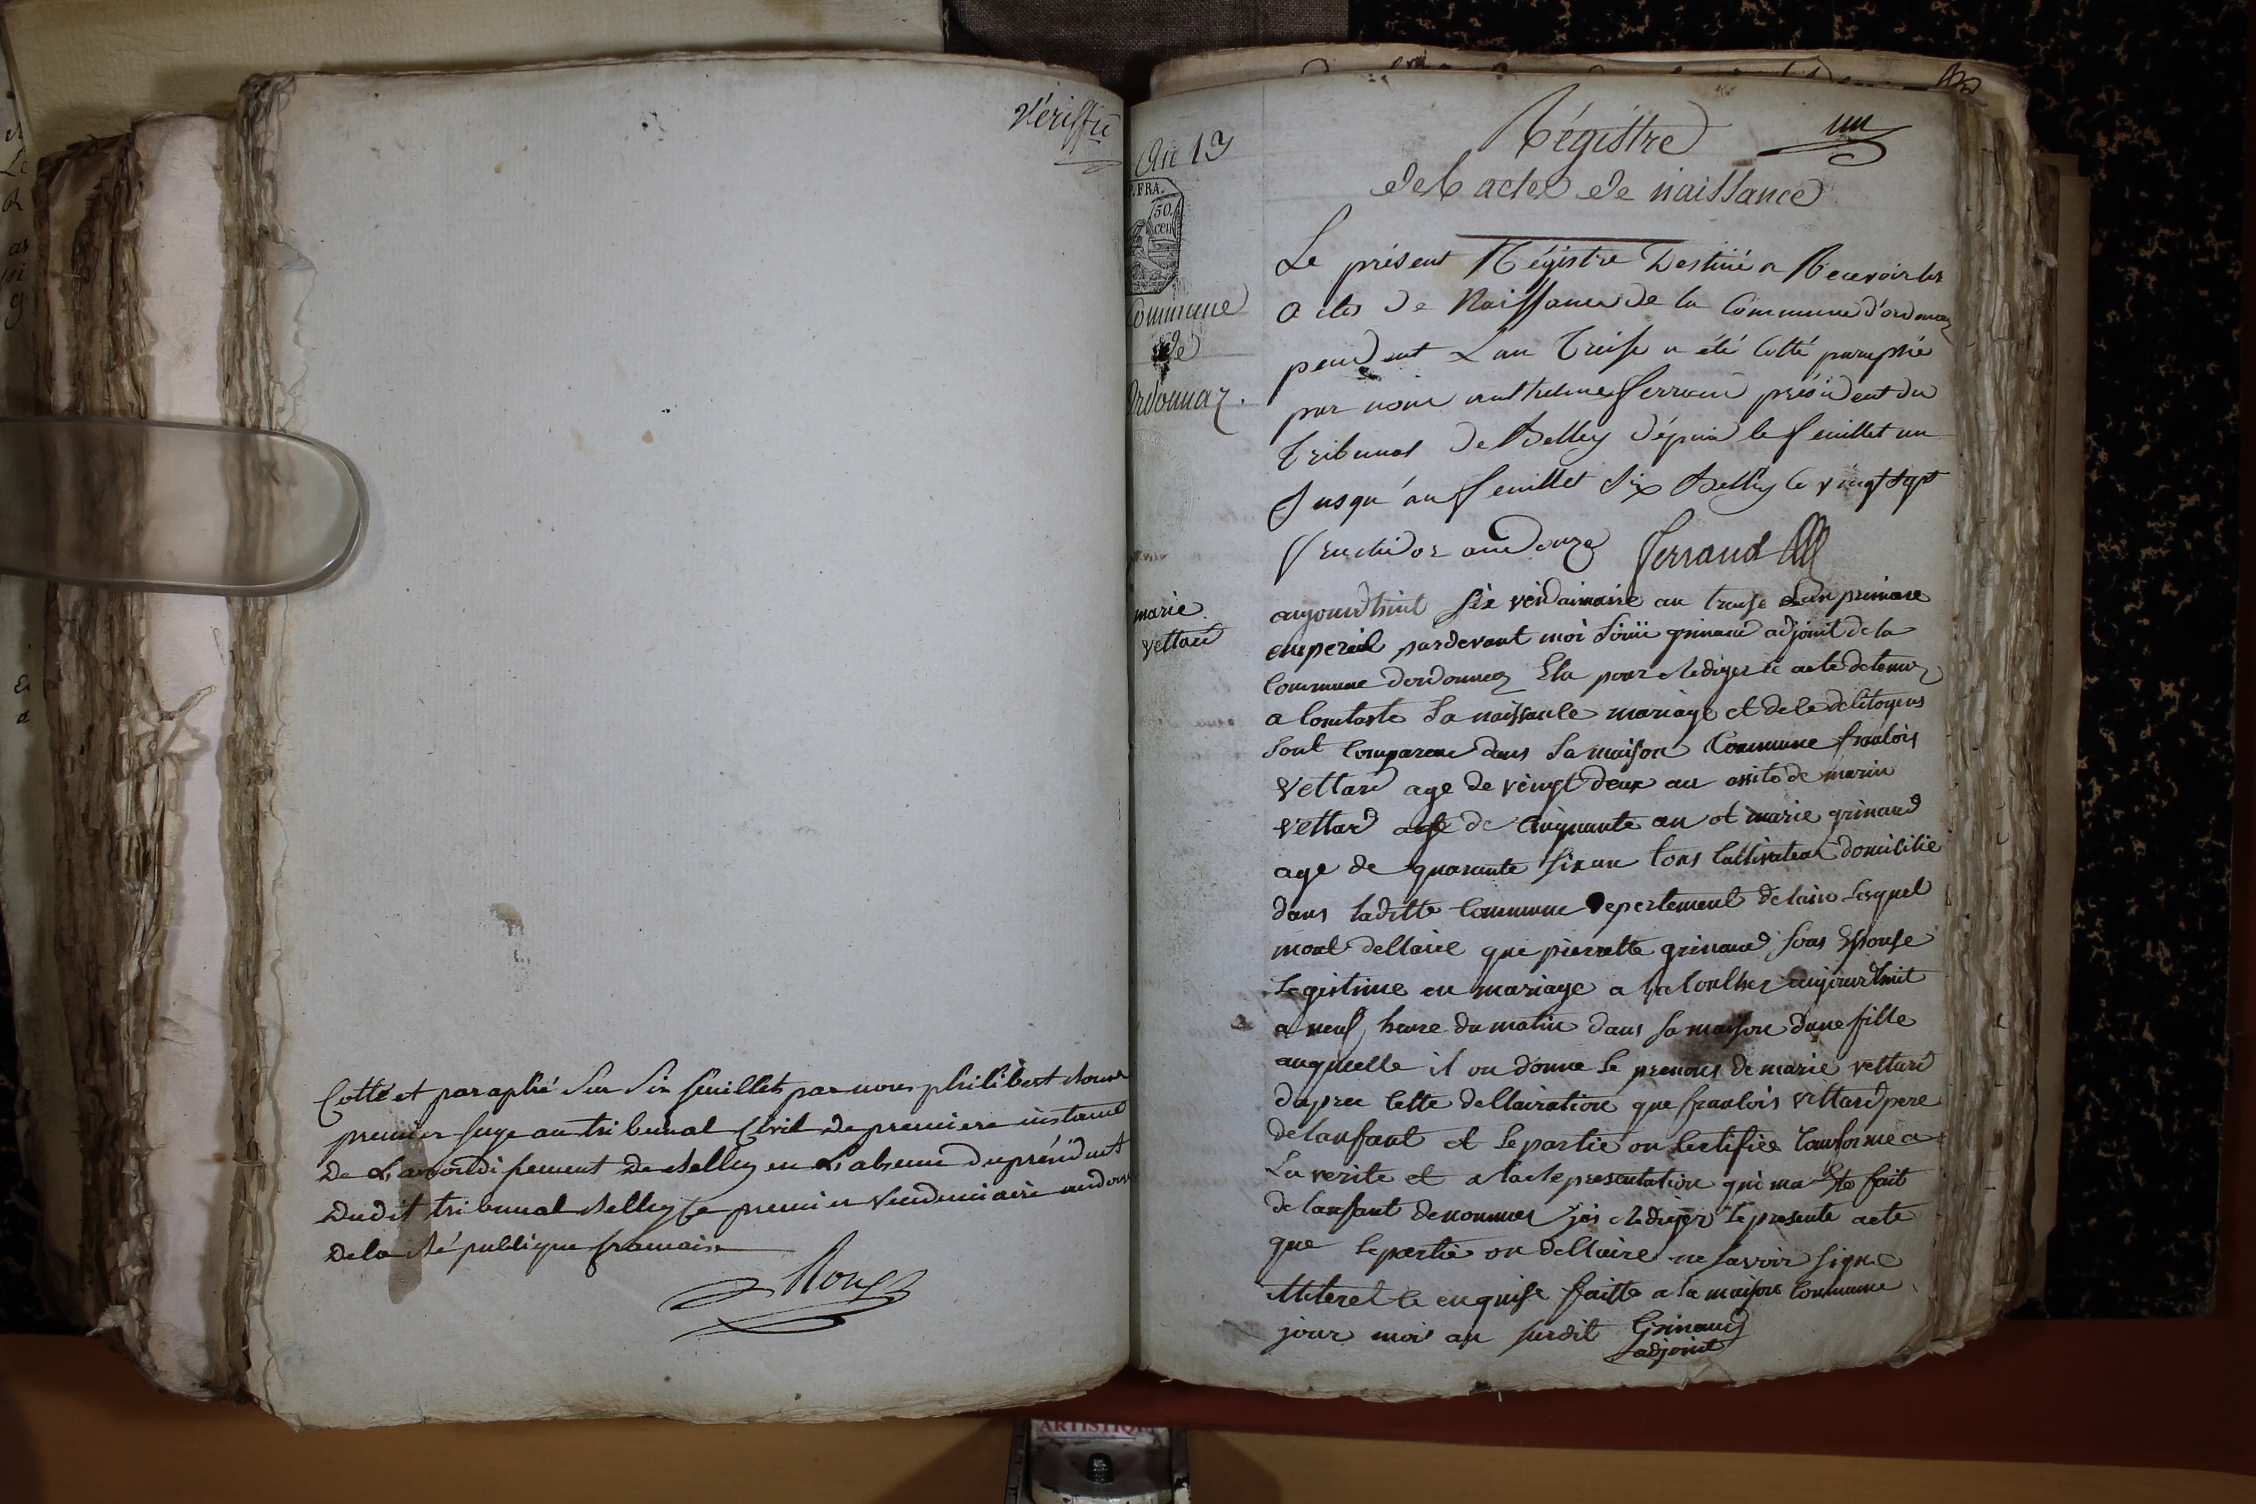 Vériffié
Cotté et paraphé sur six feuillets par nous philibert Roux
premier juge au tribunal Civil de premiere instance
de L'arrondissement de Belley en L'absence du président
dudit tribunal Belley le premier Vendemiaire an douze
de la République francaise
Roux
An 13
P. FRA.
50.
cen
Commune
de
Ordonnaz.
un
Régistre
des actes de naissance
Le présent Régistre Destiné a Recevoir les
actes de Naissance de la Commune d'ordonnaz
pendent L'an Treise a été Cotté paraphé
par nous anthelme ferrand président du
Tribunal de Belley dépuis le feuillet un
Jusqu'au feuillet six Belley le vingt sept
fructidor an douze ferrand
marie
vettard
aujourdhuit six vendaimaire an treise Lan primiare
emperial pardevant moi grinand adjoint de la
Commune dordonnaz Elu pour Rediger le acte detenuz
a Contaste la naissanse mariage et dece de Citoyens
sont Compareu dans la maison Commune francois
vettard age de vingt deux an assite de marin
vettard age de Cinquante an et marie grinand
age de quarante six an tous Cultivateur domicilie
dans laditte Commune Depertement de lain lesquel
mont dellaire que pierrette grinand sons Espouse
Legistime en mariage a La Coulher aujourdhuit
a neuf heure du matin dans sa maison dune fille
auquelle il on donne le prenons de marie vettard
dapres Cette dellairation que francois vettard pere
de lanfant et le partie on Certifiee Conforme a
La verite et a la Representation qui ma Ete fait
de lanfant denommer jai Rediger le presente acte
que le partie on dellaire ne savoir signe
de enquise faitte a la maison Commune
jour mois an surdit Grinand
adjoint
ARTISTIQU